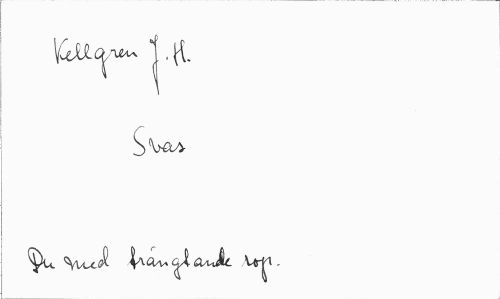 Kellgren J.H.
Svas
Du med trängtande rop.